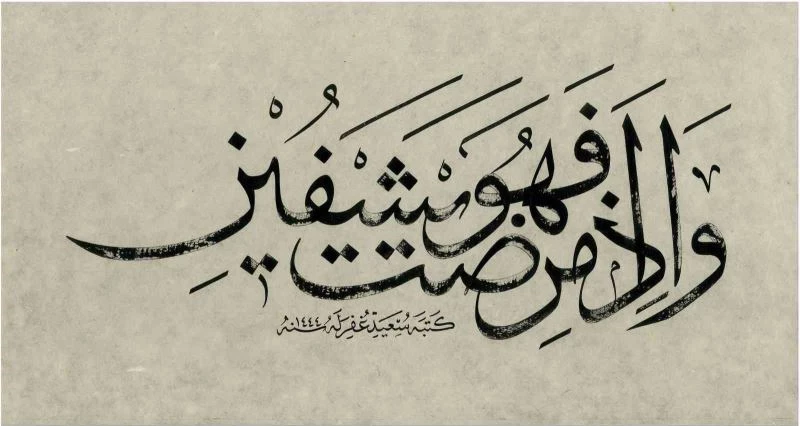 وَإِذَا مَرِضْتُ فَهُوَ يَشْفِينِ
كَتَبَهُ سُعَيْد غُفِرَ لَهُ سنة ١٤٤٤